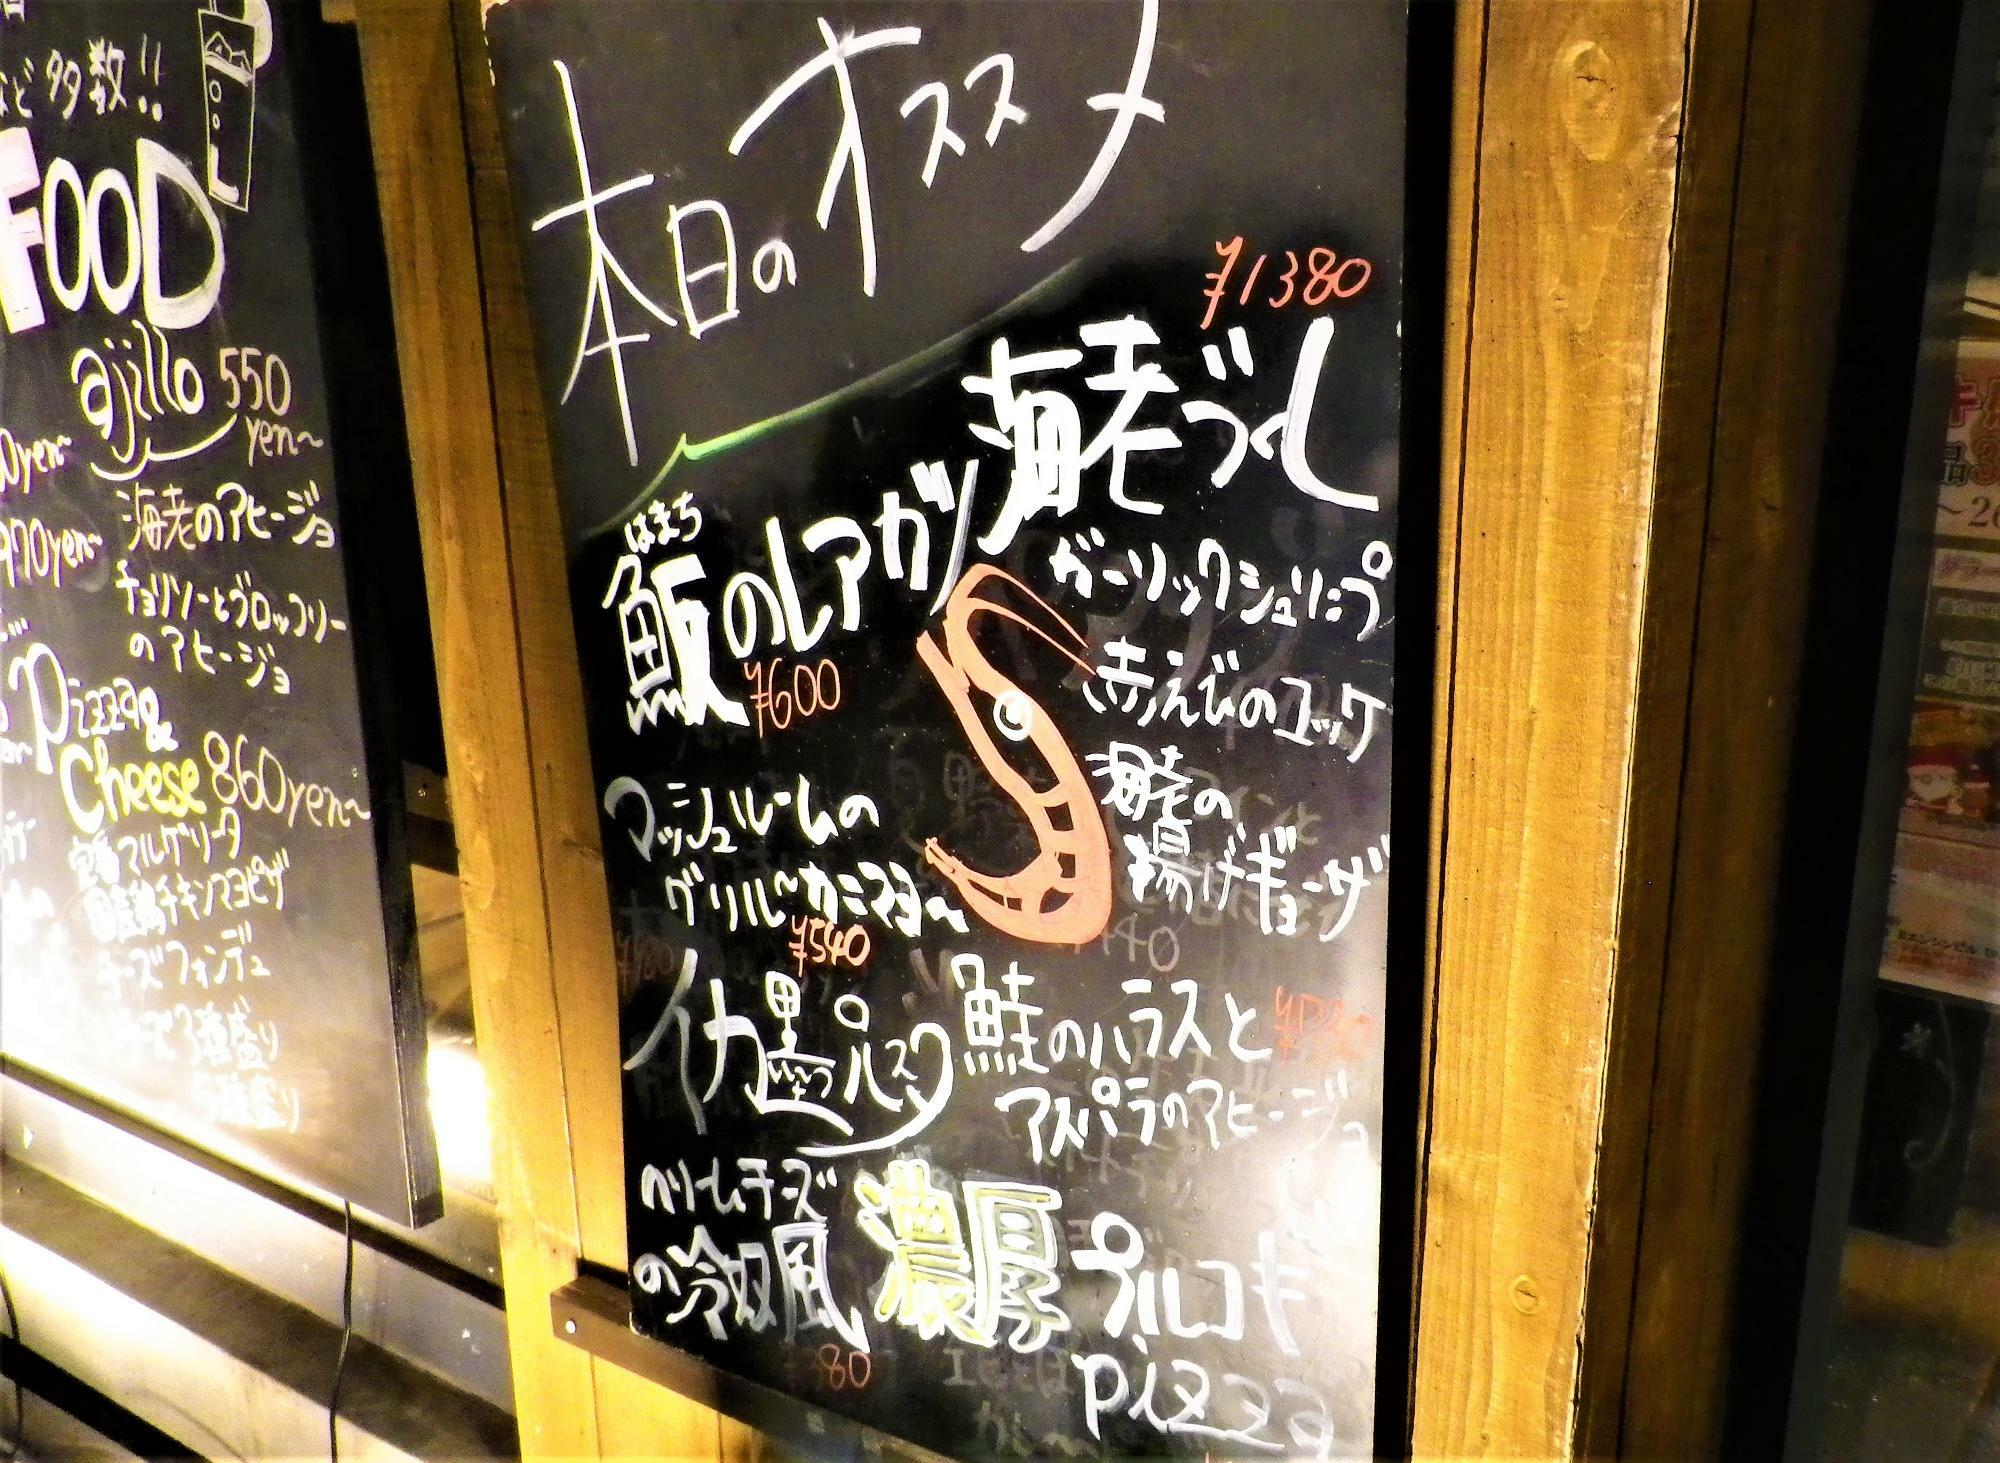 など多数!!
FOOD
ajillo 550
yen~
0yen~
970yen~
海老のアヒージョ
チョリソーとブロッコリー
のアヒージョ
Pizza&
Cheese 860yen~
マルゲリータ
国産鶏チキンマヨピザ
チーズフォンデュ
チーズ3種盛り
5種盛り
本日のオススメ
¥1380
海老づくし
ガーリックシュリンプ
赤えびのユッケ
海老の
揚げギョーザ
はまち
鰤のレアカツ
¥600
マッシュルームの
グリル~カニマヨ~
¥540
イカ墨パスタ
鮭のハラスと
アスパラのアヒージョ
クリームチーズ
の冷奴風
濃厚プルコギ
pizza